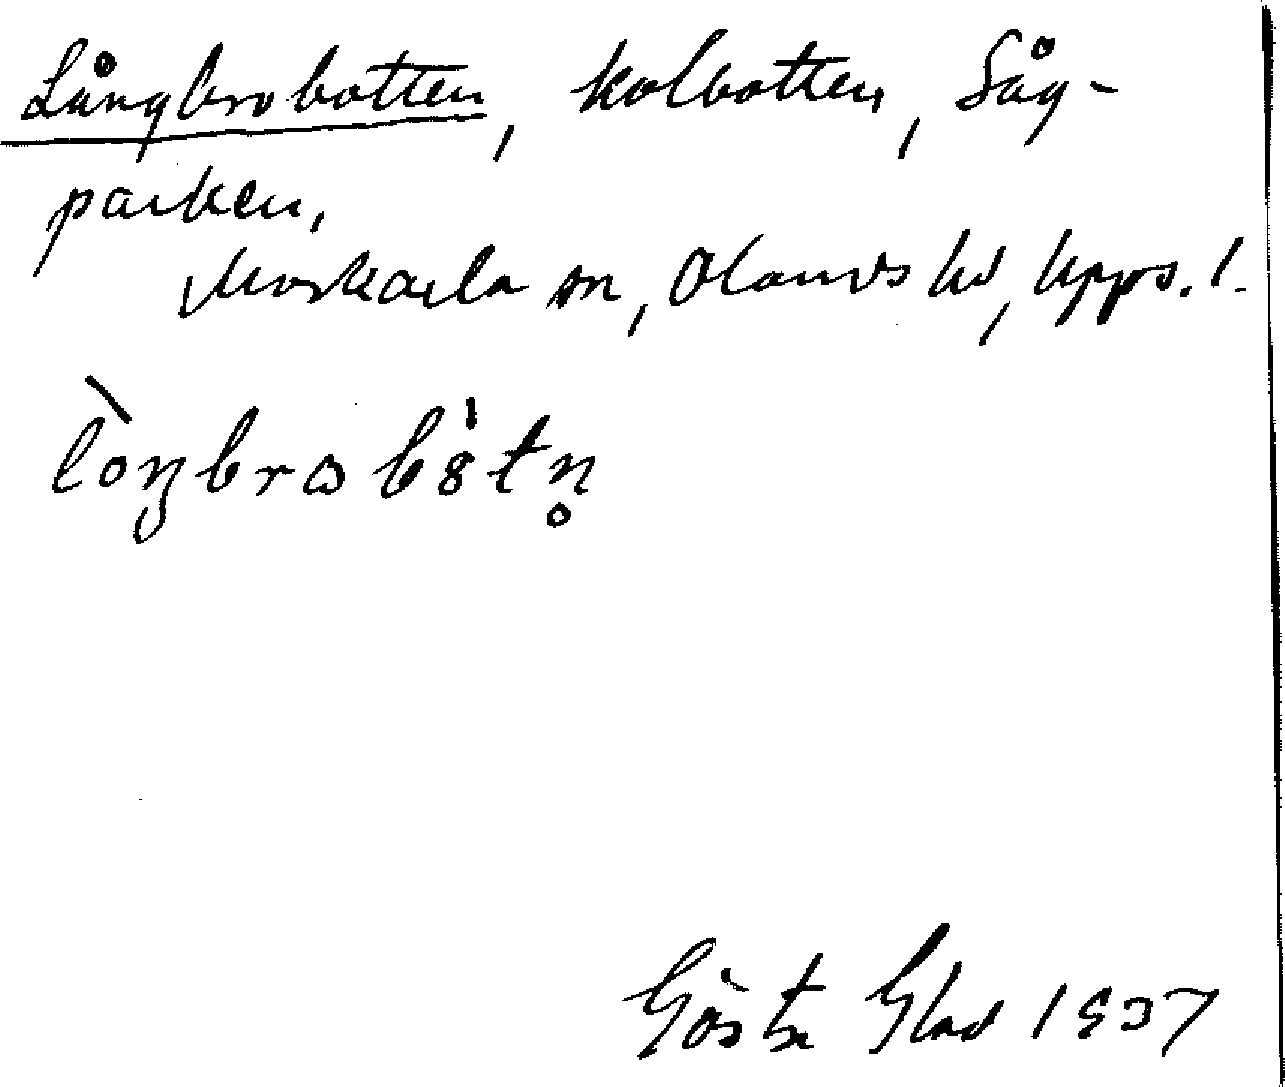 Långbrobotten, kolbotten, Såg-
parken,
Morkarla sn, Olands hd, Upps. l.
lòŋbrωbȣ̀tn̥
Gösta Glad 1937